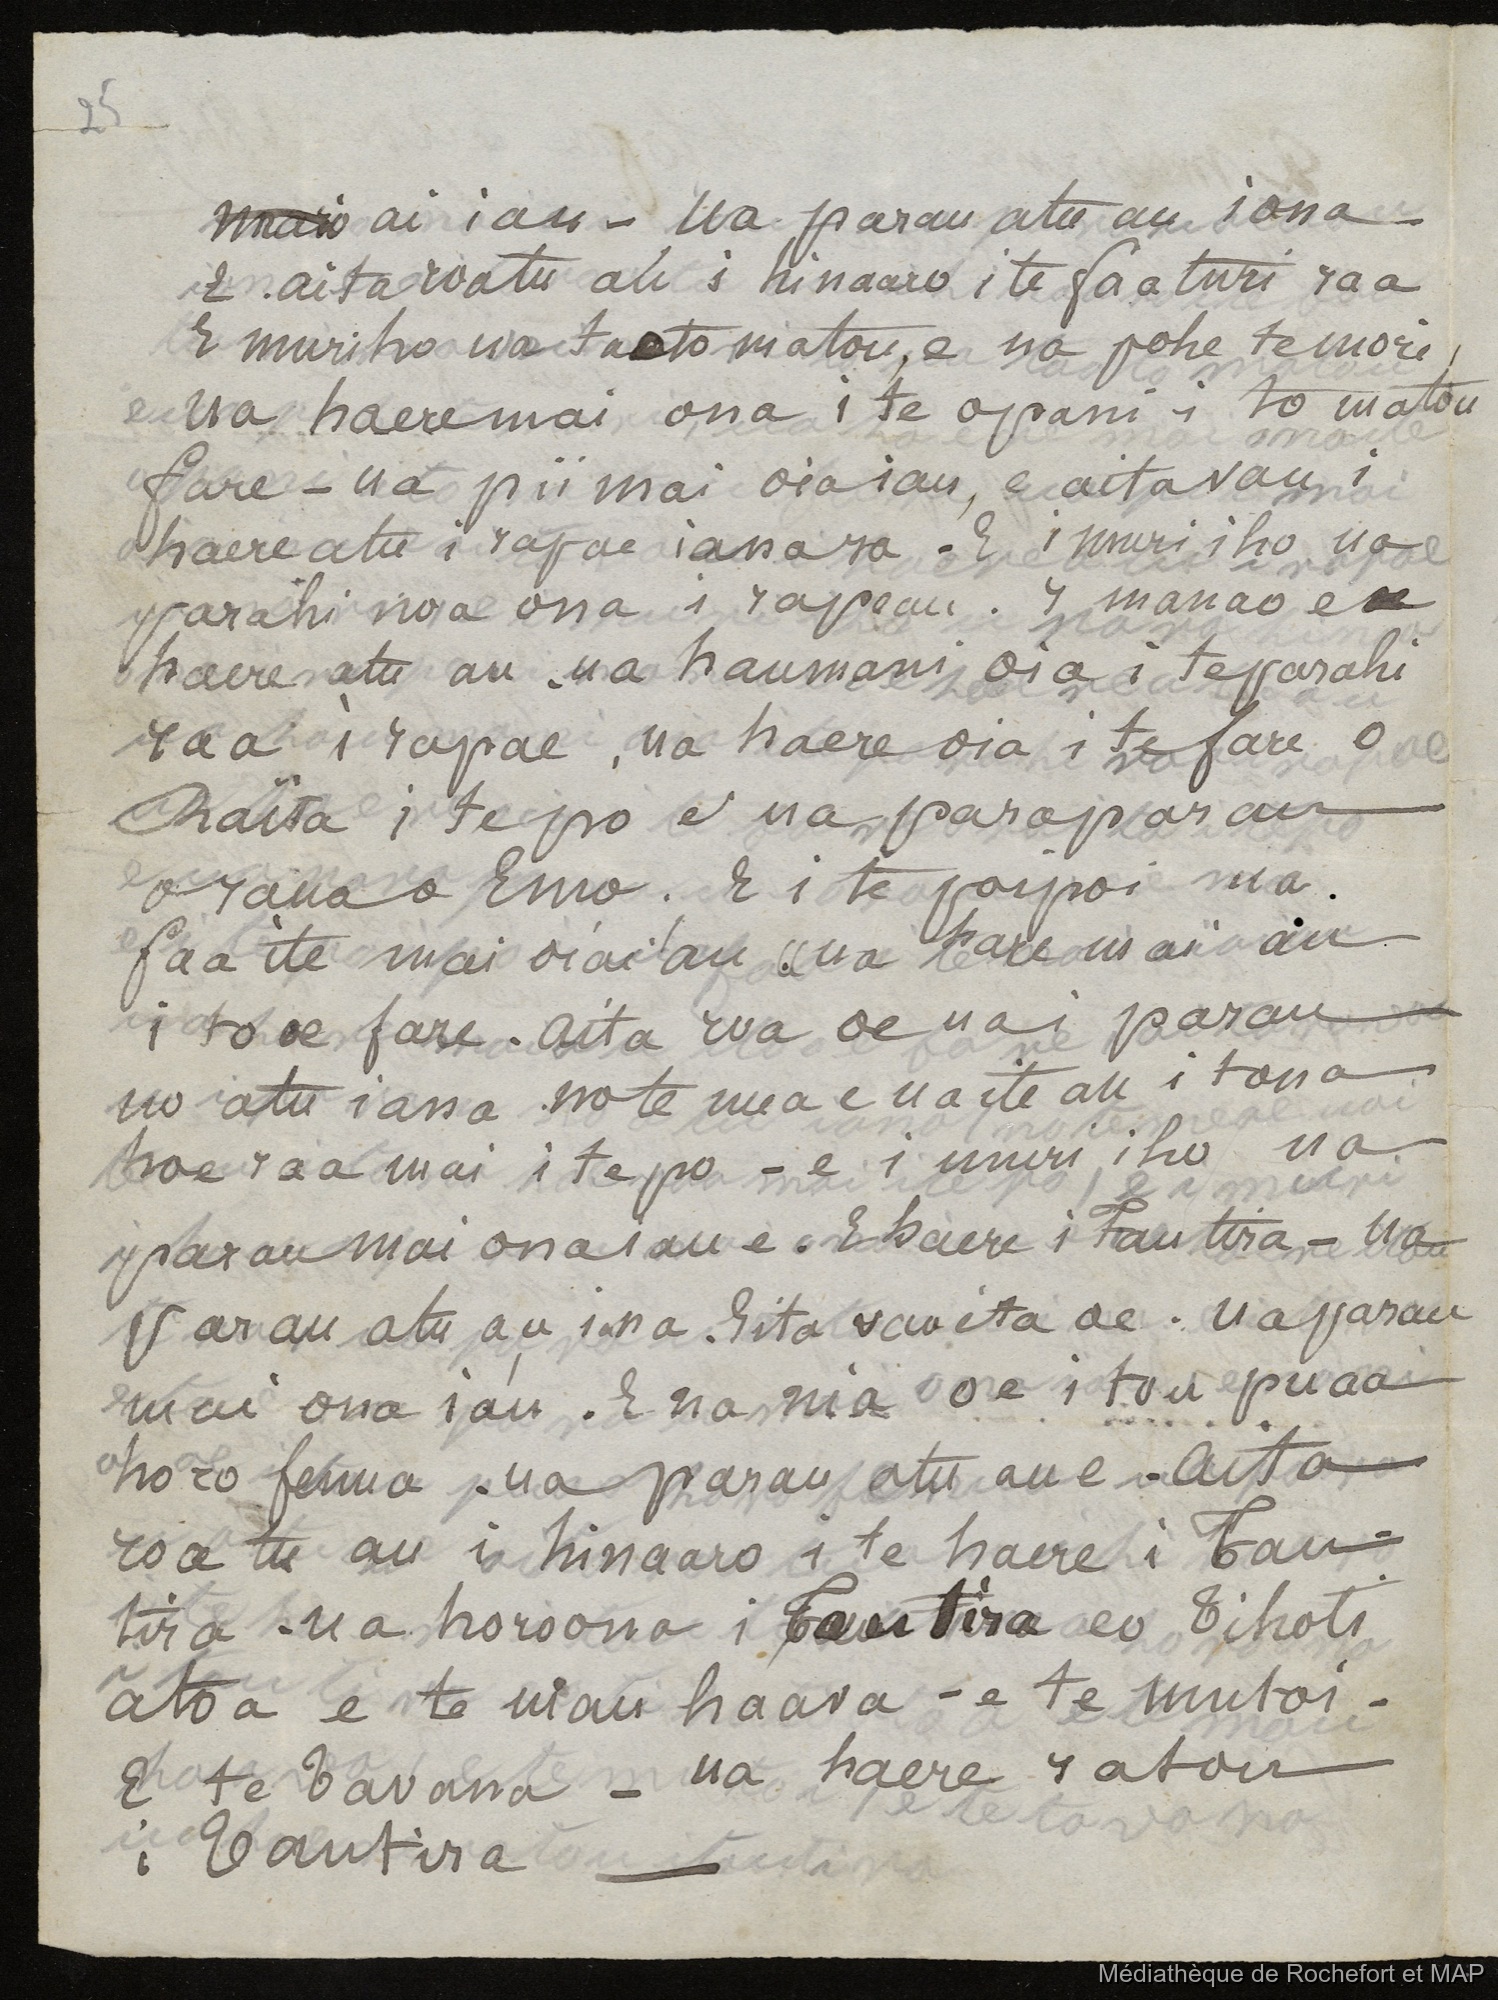 25
ai iau - Ua parau atu au iona -
E. aita roatu au i hinaaro i te faaturi raa
E muriho ua taoto matou, e ua pohe te mori,
ua haere mai ona i te opani i to matou
fare - ua pii mai oia iau, e aita vau i
haere atu i rapae iana ra - E i muri iho ua
parahi noa ona i rapeau. I manao e
haere atu au . ua haumani oia i te parahi
raa i rapae , ua haere oia i te fare o
Raïta i te po e ua paraparau
o raua o Emo . E i te poipoi ua .
faaite mai oia i'au " ua haere mai au
i to oe fare . Aita roa oe uai parau
no atu iana no te mea e ua ite au i tona
hoe raa mai i te po - e i muri iho ua
parau mai ona iau e . E haere i Tautira - Ua
parau atu au ina . Eita vau ita oe . Ua parau
mai ona iau . E na nia oe i tou puaa
horo fenua . ua parau atu au e . Aita
roa tu au i hinaaro i te haere i Tau-
tira . ua horo ona i Tautira eo Tihoti
atoa e te mau haava - e te mutoi -
E te Tavana - ua haere ratou
i Tautira
Médiathèque de Rochefort et MAP